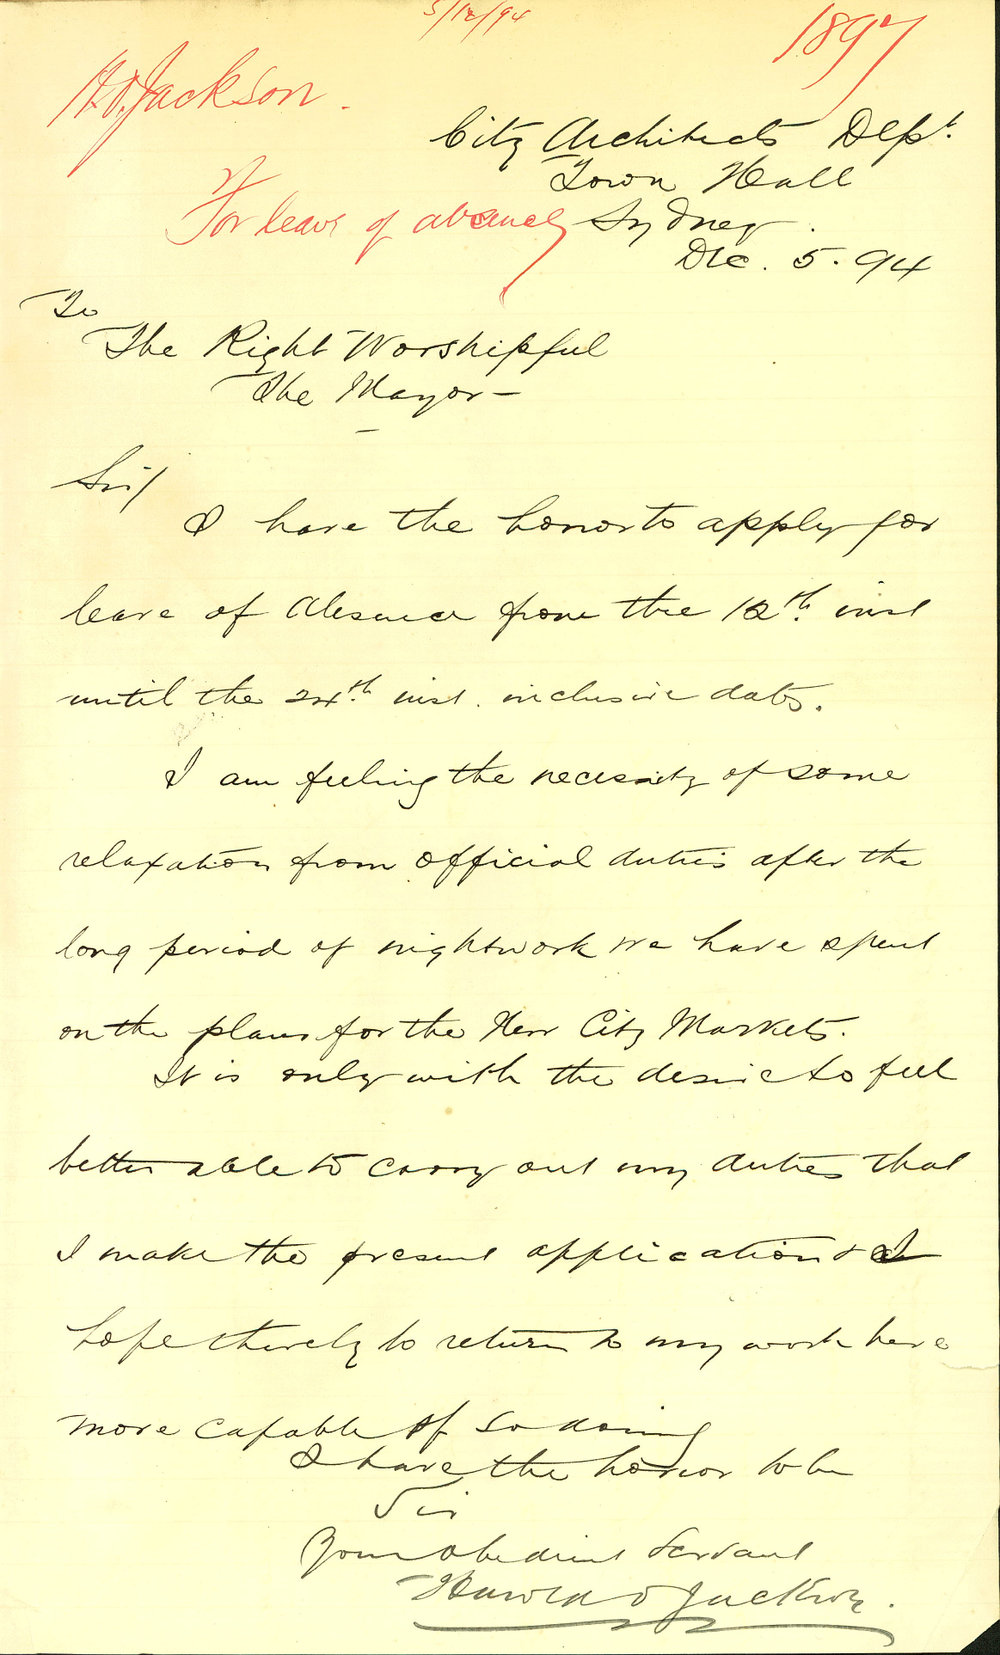 5/12/94
1897
H.D. Jackson.
City Architects Dept.
Town Hall
For leave of absence
Sydney.
Dec. 5. 94
To
The Right Worshipful
The Mayor —
Sir/
I have the honor to apply for
leave of Absence from the 12th. inst
until the 24th. inst. inclusive dates.
I am feeling the necessity of some
relaxation from official duties after the
long period of nightwork we have spent
on the plans for the New City Markets.
It is only with the desire to feel
better able to carry out my duties that
I make the present application & I
hope thereby to return to my work here
more capable of so doing
I have the honor to be
Sir
Your obedient Servant
Harold D Jackson.